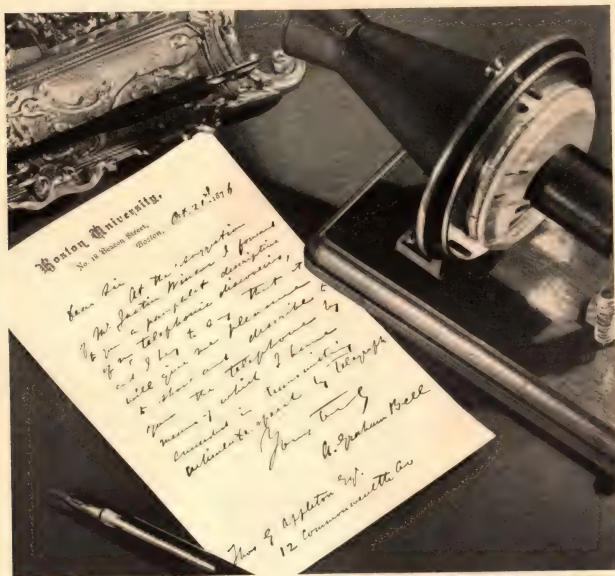 Boston University,
No. 18 Beacon Street,
Boston, Oct. 21st 1876
Dear Sir
At the suggestion
of Mr Justin Winsor I forward
to you a pamphlet descriptive
of my telephonic discoveries,
and I beg to say that it
will give me pleasure
to show and describe to
you the telephone by
means of which I have
succeeded in transmitting
articulate speech by telegraph
Yours truly
A. Graham Bell
Thos G Appleton Esq.
12 Commonwealth Av